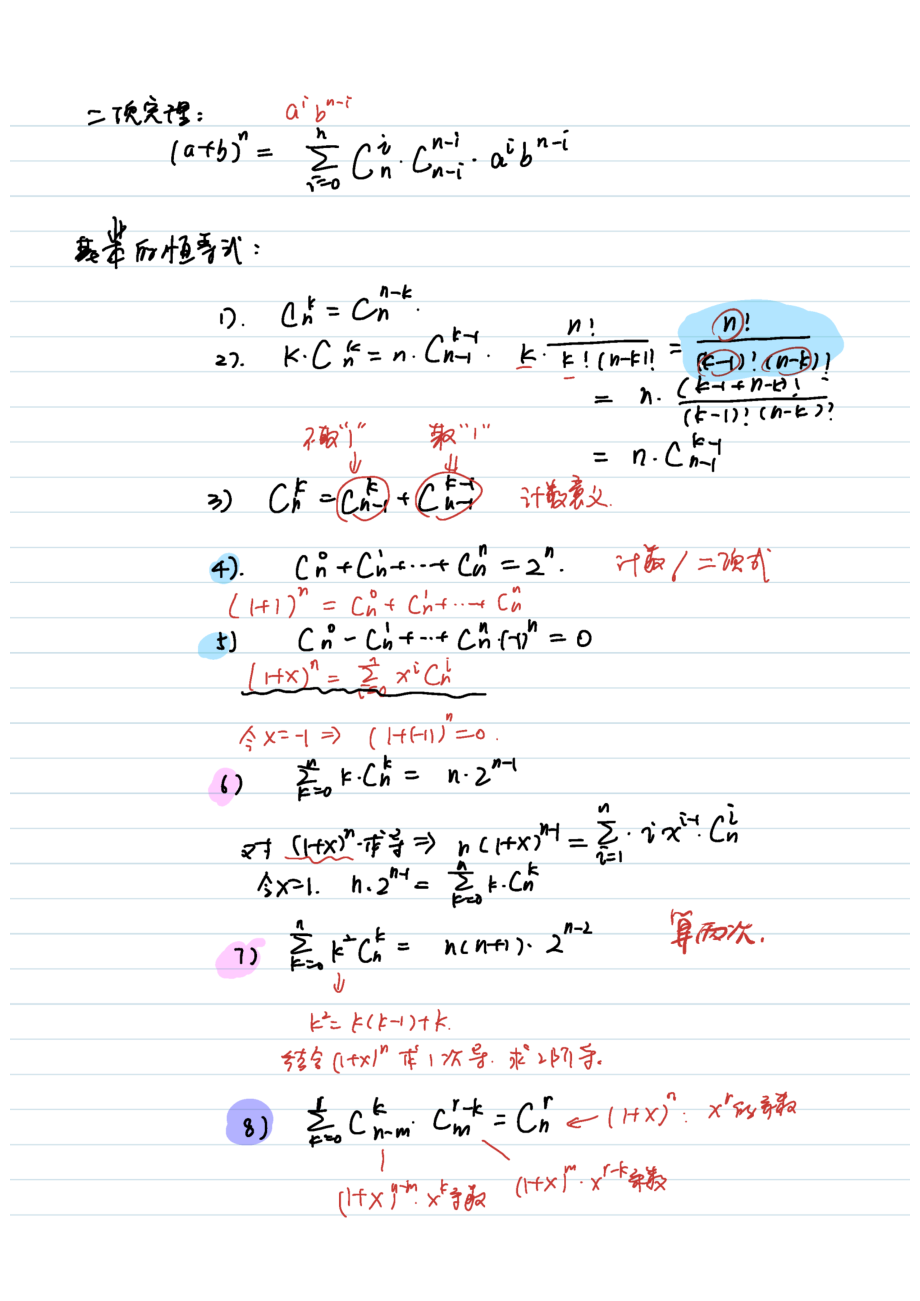 二项定理： aⁱbⁿ⁻ⁱ
(a+b)ⁿ = Σ_{i=0}^{n} C_n^i · C_{n-i}^{n-i} · aⁱbⁿ⁻ⁱ
基业的恒等式：
1). C_n^k = C_n^{n-k}.
2). k·C_n^k = n·C_{n-1}^{k-1}. k· n!/(k!(n-k)!) = n!/((k-1)!(n-k)!)
= n· (k-1+n-k)!/((k-1)!(n-k)!)
= n·C_{n-1}^{k-1}
不取"1" 取"1"
3) C_n^k = C_{n-1}^k + C_{n-1}^{k-1} 计数意义.
4). C_n^0 + C_n^1 + ··· + C_n^n = 2ⁿ. 计数 / 二项式
(1+1)ⁿ = C_n^0 + C_n^1 + ··· + C_n^n
5) C_n^0 - C_n^1 + ··· + C_n^n (-1)ⁿ = 0
(1+x)ⁿ = Σ_{i=0}^{n} xⁱ C_n^i
令 x=-1 ⇒ (1+(-1))ⁿ=0.
6) Σ_{k=0}^{n} k·C_n^k = n·2ⁿ⁻¹
对 (1+x)ⁿ·求导 ⇒ n(1+x)ⁿ⁻¹ = Σ_{i=1}^{n} · i xⁱ⁻¹ · C_n^i
令x=1. n·2ⁿ⁻¹ = Σ_{k=0}^{n} k·C_n^k
7) Σ_{k=0}^{n} k² C_n^k = n(n+1)·2ⁿ⁻² 算两次.
↓
k² = k(k-1)+k.
结合 (1+x)ⁿ 求1次导. 求2阶导.
8) Σ_{k=0}^{r} C_{n-m}^k · C_m^{r-k} = C_n^r ← (1+x)ⁿ: xʳ的系数
(1+x)ⁿ⁻ᵐ: xᵏ系数 (1+x)ᵐ·xʳ⁻ᵏ系数